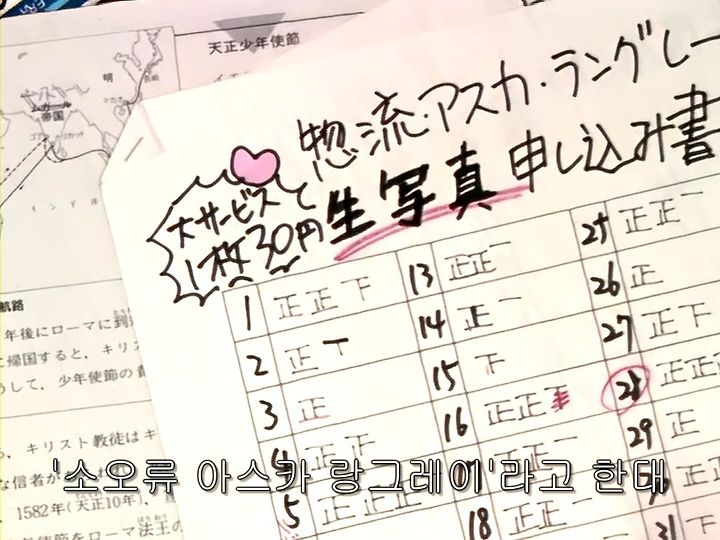 天正少年使節
明
ムガール
帝国
マカオ
ゴア
カリカット
インド洋
航路
年後にローマに到
に帰国すると，キリス
うして，少年使節の貴
，キリスト教徒はキ
な信者が
1582年(天正10年)，
年使節をローマ法王の
惣流・アスカ・ラングレー
大サービス
1枚30円
生写真申し込み書
1 正正下
2 正丅
3 正
4 正下
5 正正正
13 正正一
14 正一
15 下
16 正正
17 正正一
18 正正
25 正正一
26 正
27 正下
28 正正正
29 正
31 下
'소오류 아스카 랑그레이'라고 한대